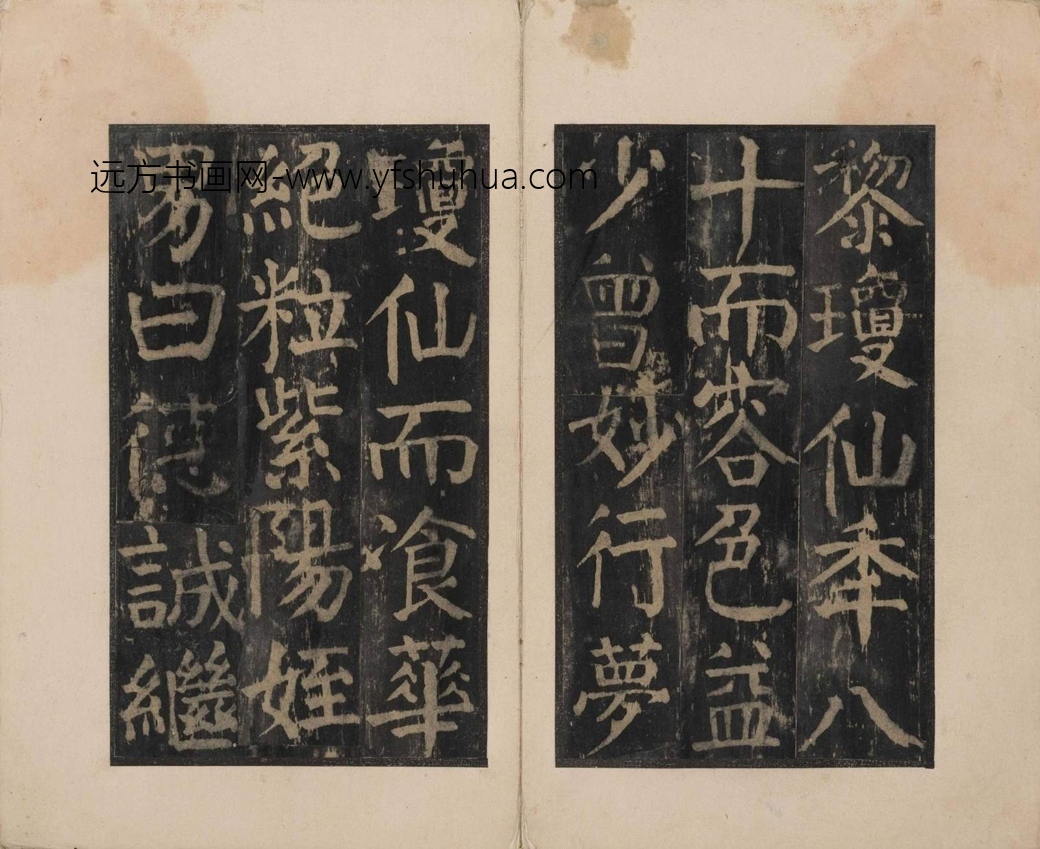 黎瓊仙年八
十而容色益
少曾妙行夢
瓊仙而飡華
絕粒紫陽姪
男曰德誠繼
远方书画网-www.yfshuhua.com